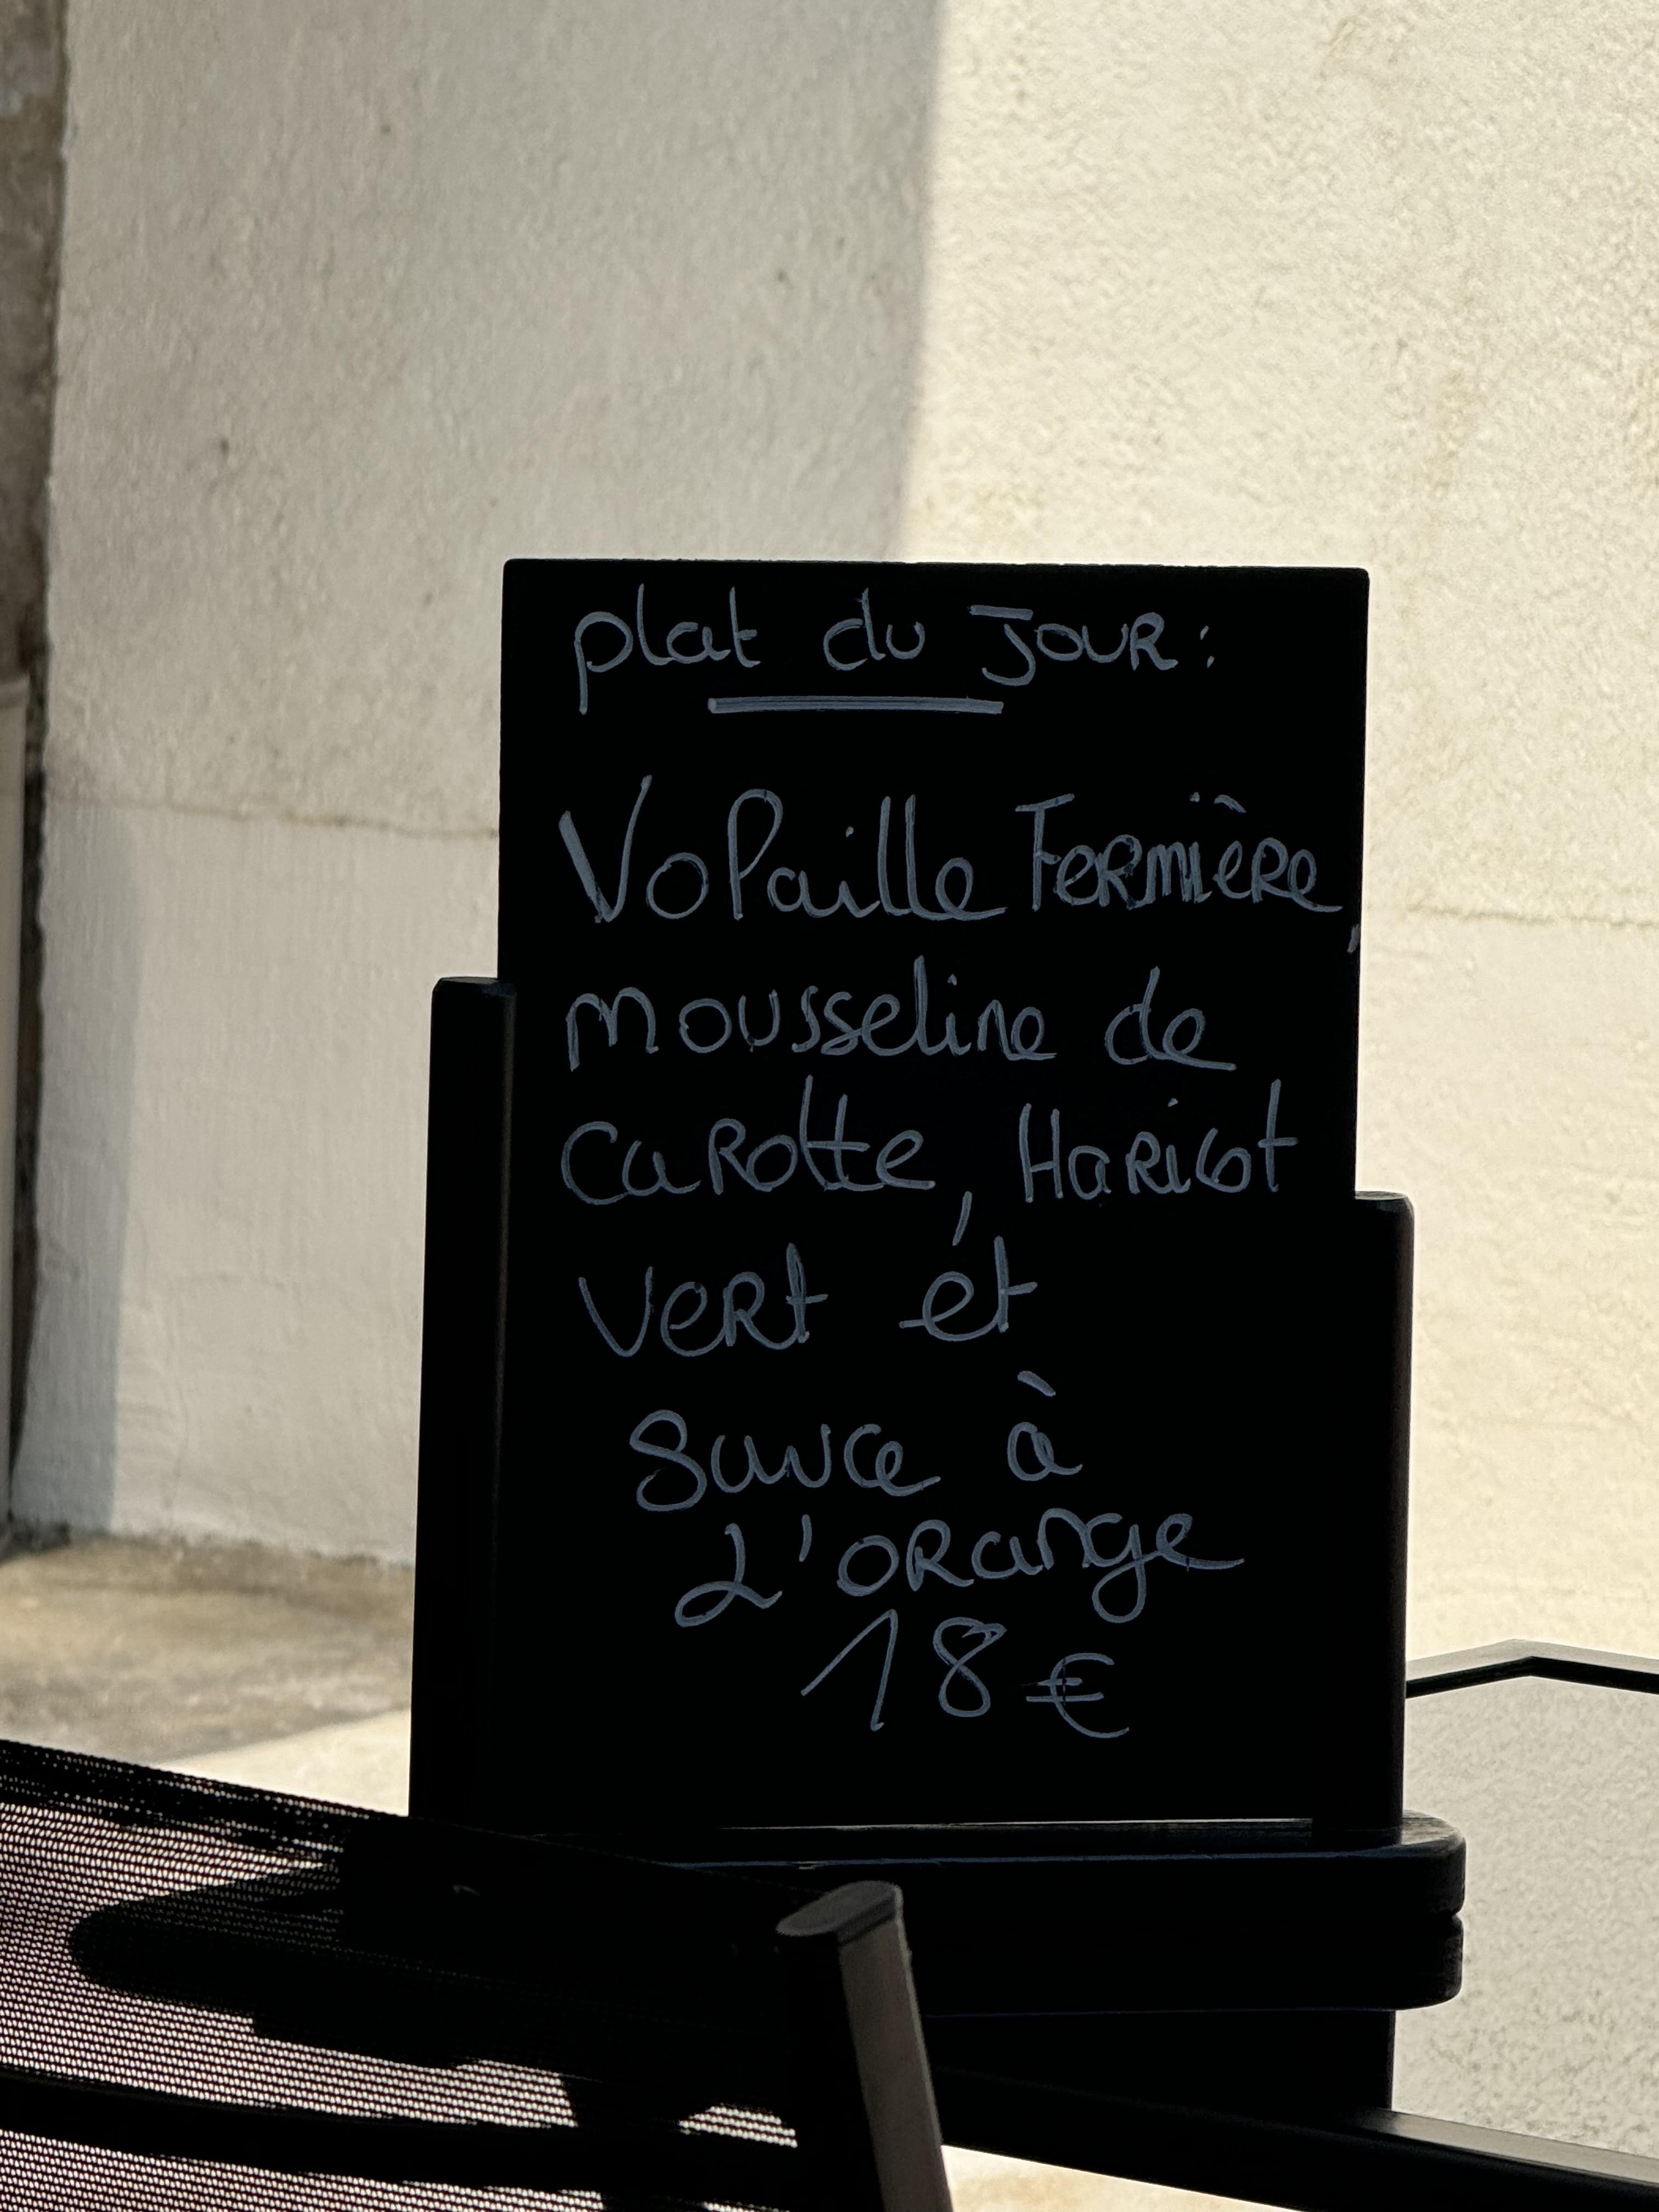 plat du JOUR :
Volaille Fermière,
mousseline de
Carotte, Haricot
Vert ét
Sauce à
L'ORange
18€